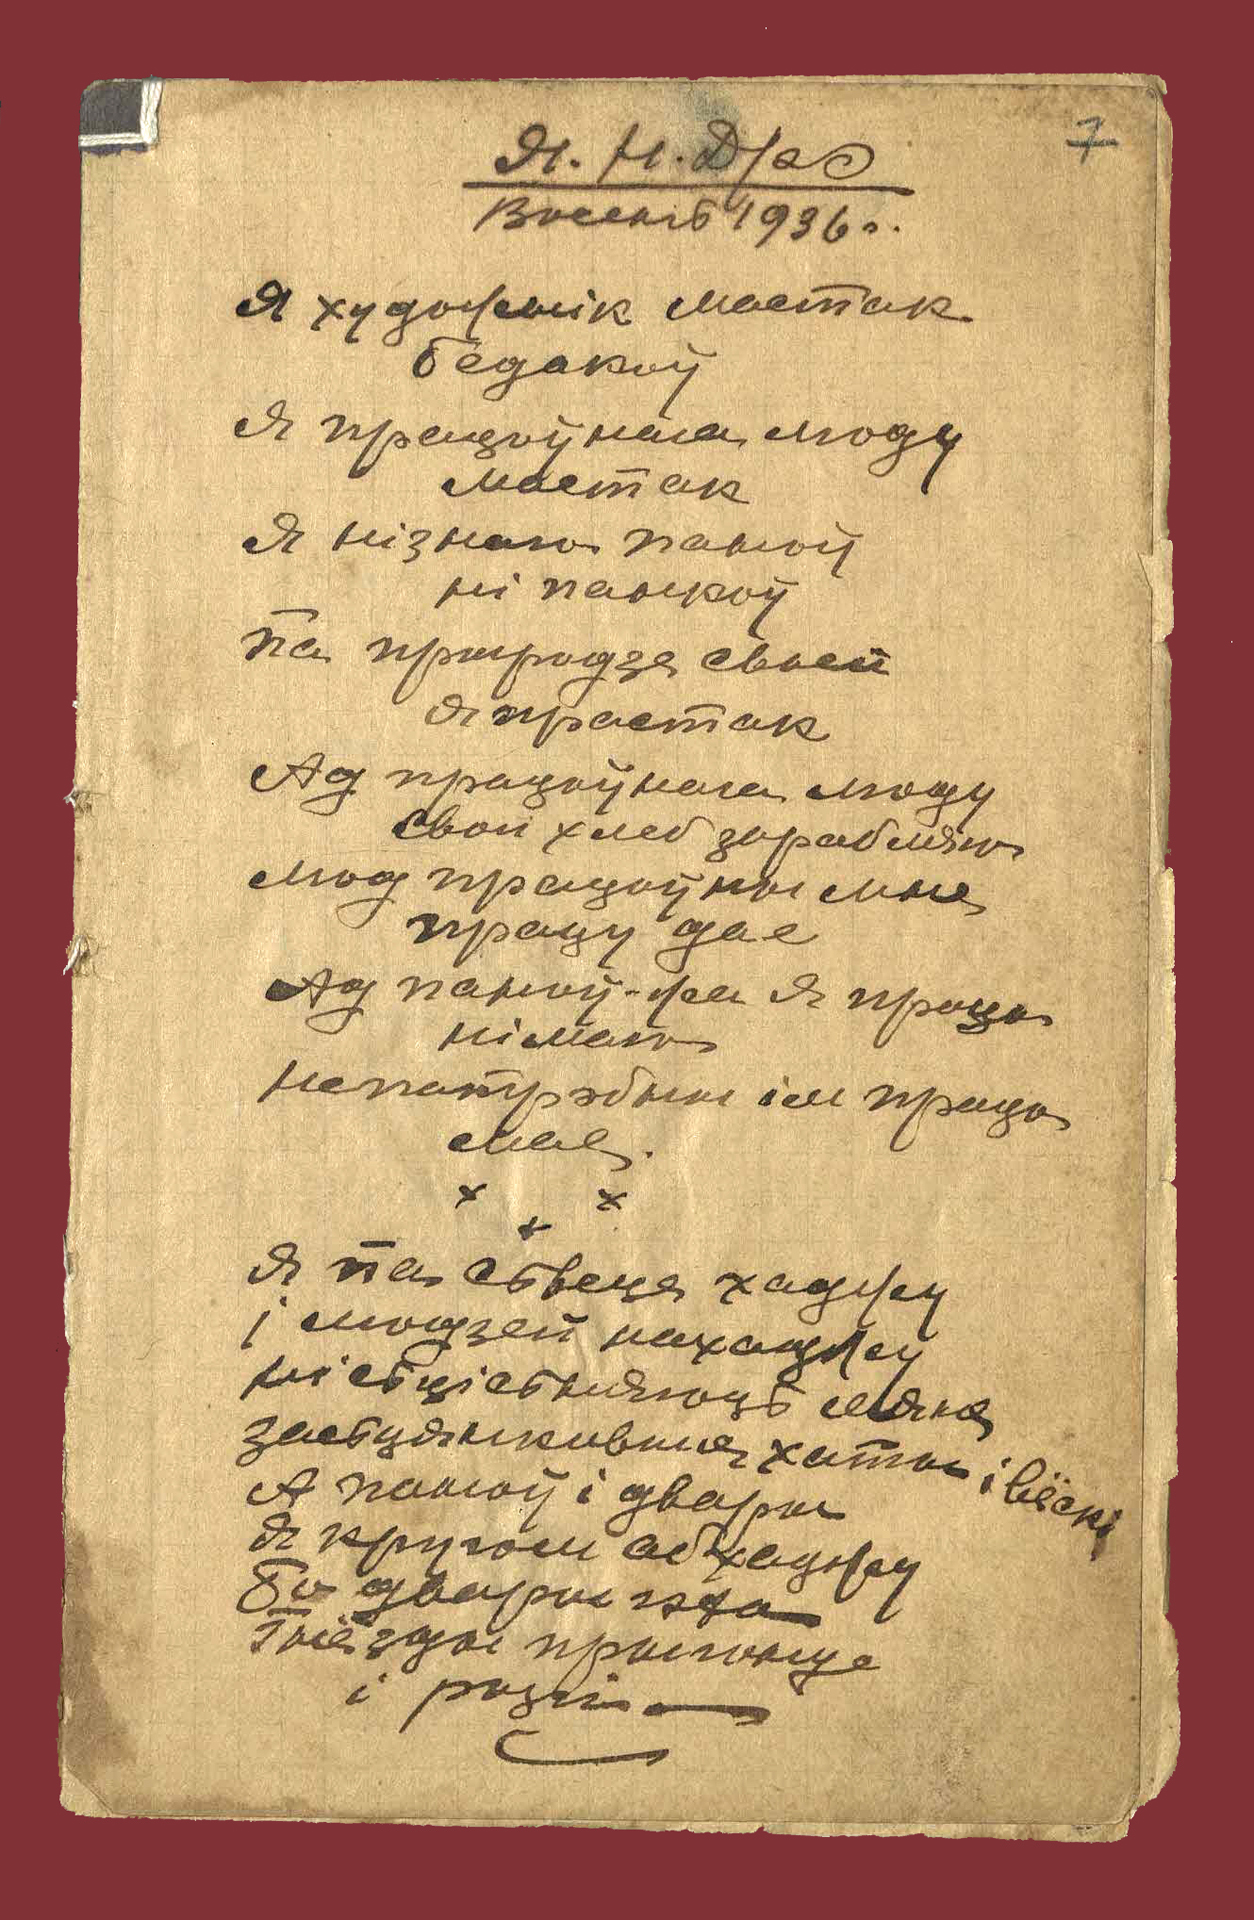 7
Я. Н. Др
Восень 1936 г.
Я художнік мастак
бедакоў
Я працоўнага люду
мастак
Я нізнаю паноў
ні панкоў
Па прыродзе сваей
я прастак
Ад працоўнага люду
свой хлеб зарабляю
Люд працоўны мне
працу дае
Ад паноў-жа я працы
німаю
непатрэбны ім праца
мая.
х х
х
Я па сьвеце хаджу
і людзей нахаджу
ні сьцісьняюць мяне
засьцянкивые хаты і вёскі
А паноў і двары
Я кругом абхаджу
Бо двары
Гнёзды прыгонце
і розгі